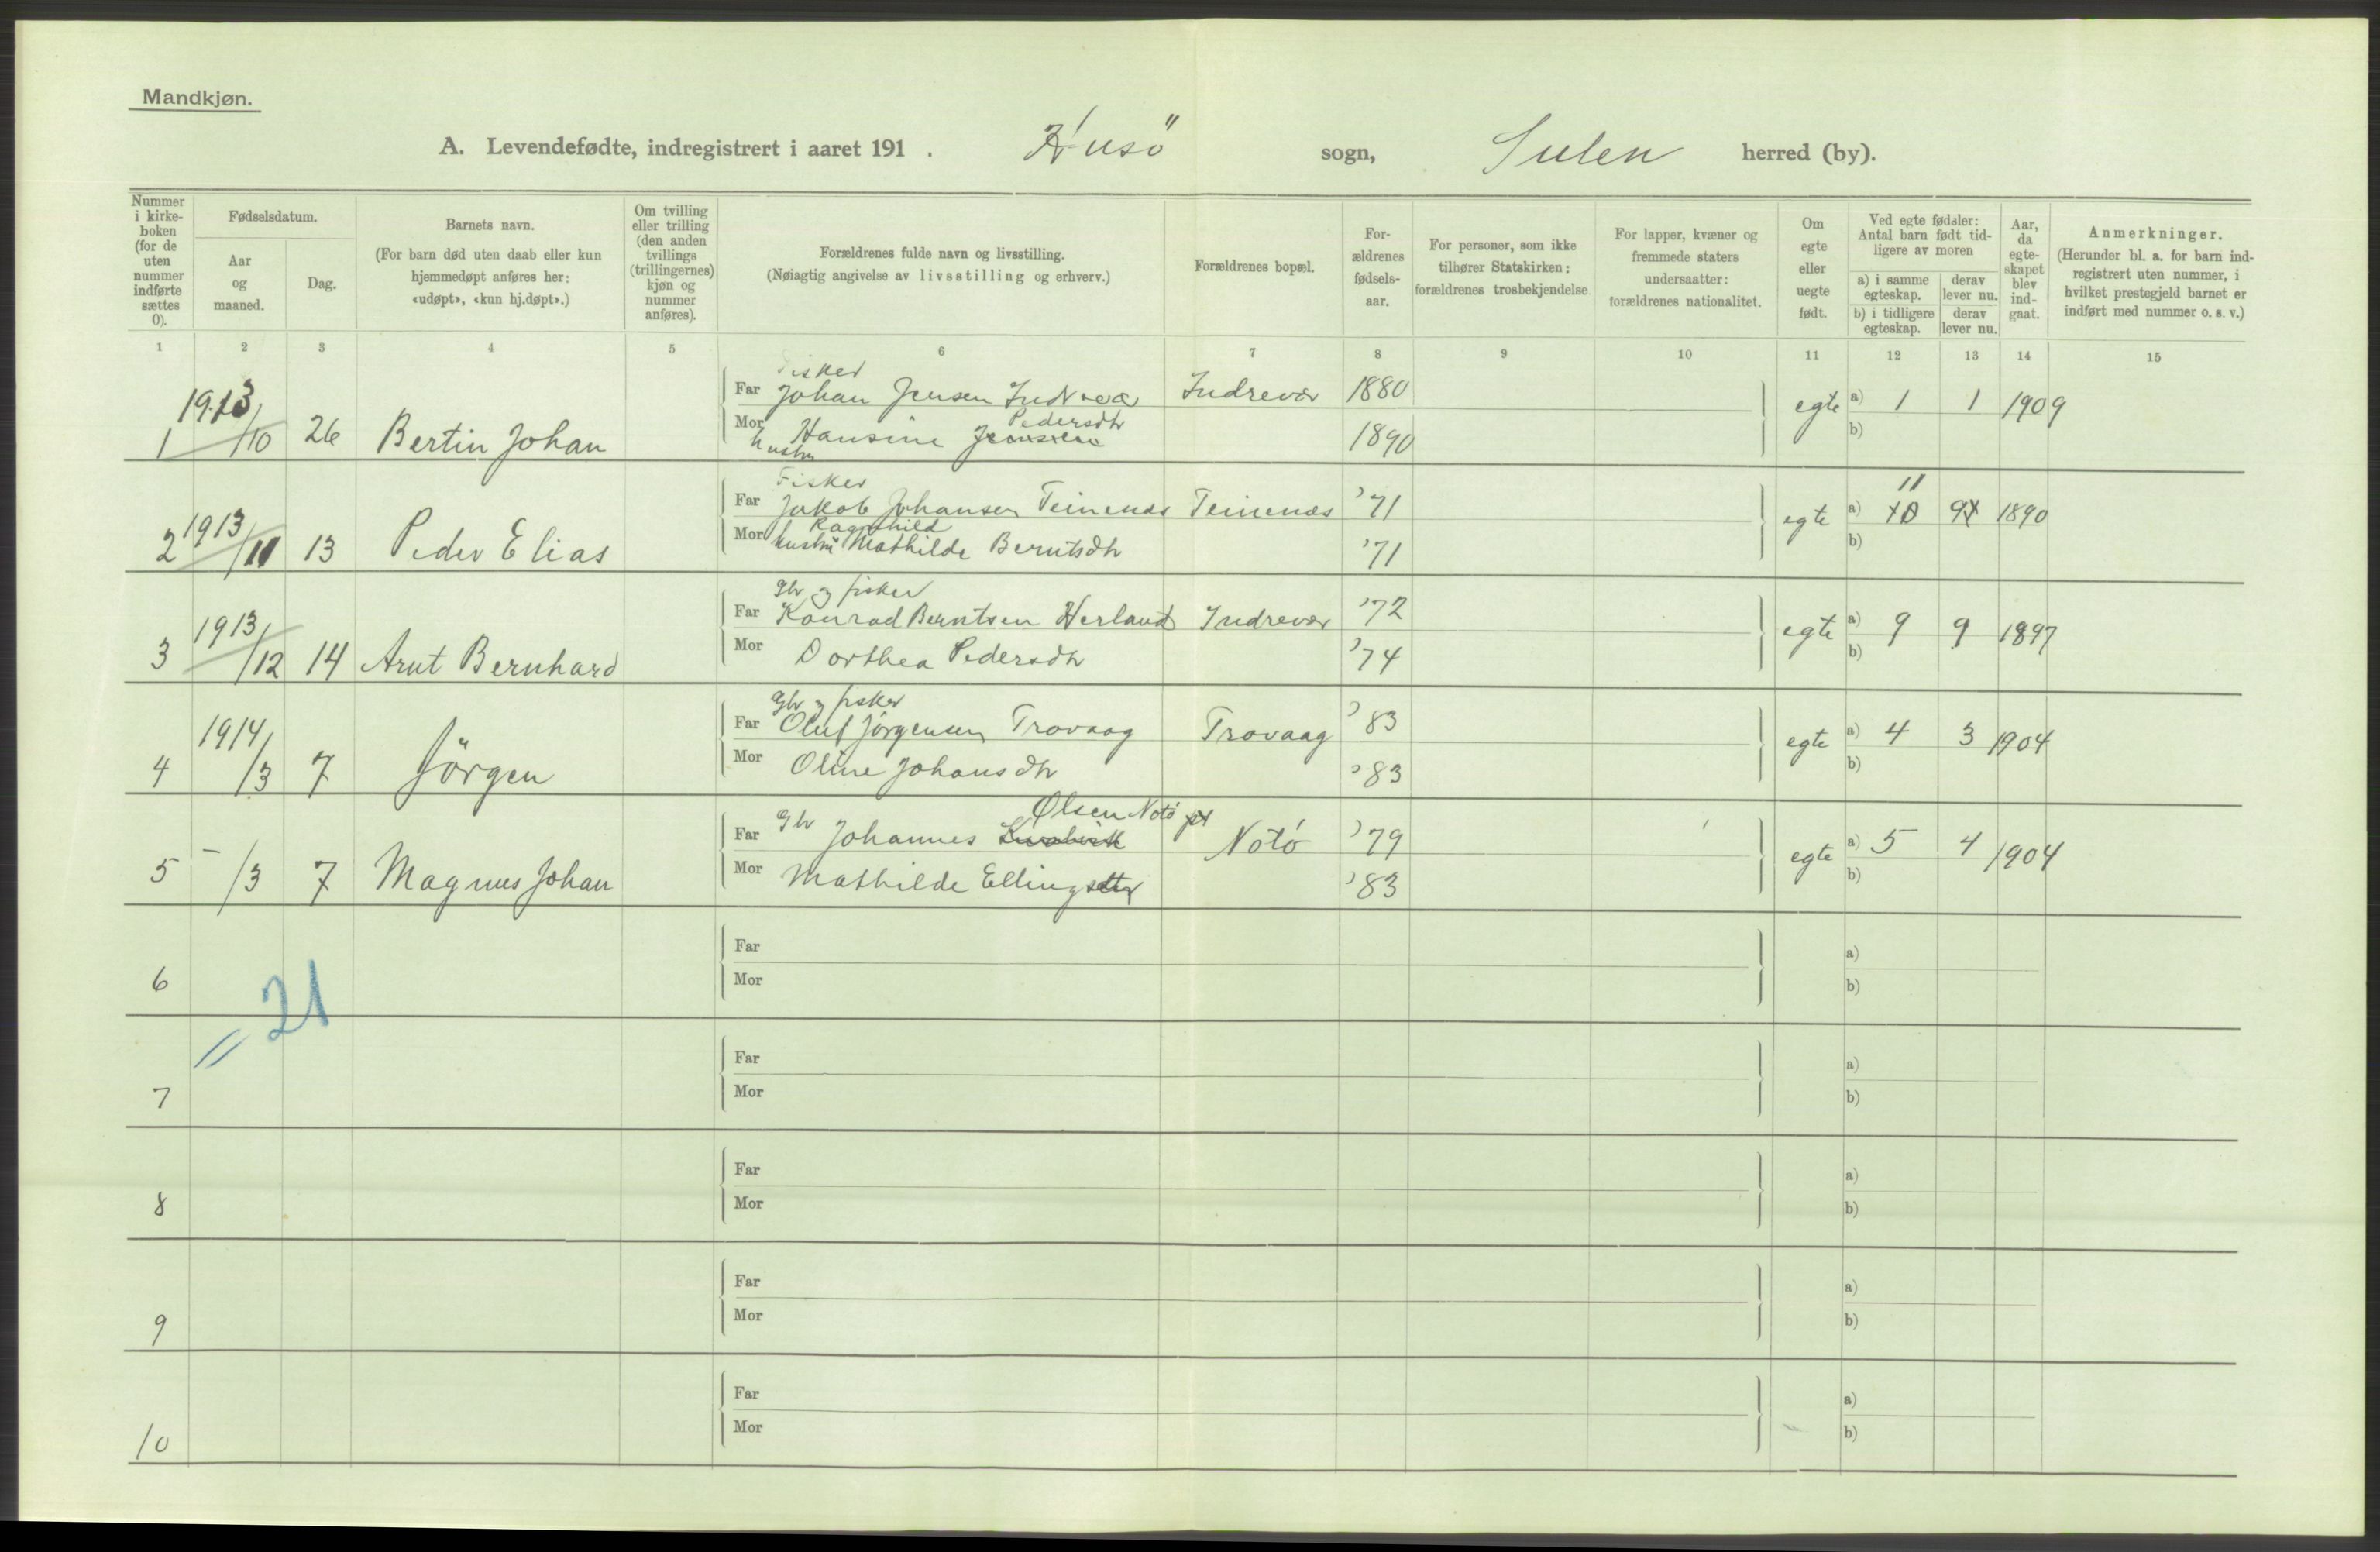 Mandkjøn.
A. Levendefødte, indregistrert i aaret 191 . Husö sogn, Sulen herred (by).
Nummer i kirke-boken (for de uten nummer indførte sættes 0).
Fødselsdatum.
Aar og maaned.
Dag.
Barnets navn.
(For barn død uten daab eller kun hjemmedøpt anføres her: «udøpt», «kun hj.døpt».)
Om tvilling eller trilling (den anden tvillings (trillingernes) kjøn og nummer anføres).
Forældrenes fulde navn og livsstilling.
(Nøiagtig angivelse av livsstilling og erhverv.)
Forældrenes bopæl.
For-ældrenes fødsels-aar.
For personer, som ikke tilhører Statskirken: forældrenes trosbekjendelse
For lapper, kvæner og fremmede staters undersaatter: forældrenes nationalitet.
Om egte eller uegte født.
Ved egte fødsler: Antal barn født tid-ligere av moren
a) i samme egteskap.
derav lever nu.
b) i tidligere egteskap.
derav lever nu.
Aar, da egte-skapet blev ind-gaat.
Anmerkninger.
(Herunder bl. a. for barn ind-registrert uten nummer, i hvilket prestegjeld barnet er indført med nummer o. s. v.)
1 2 3 4 5 6 7 8 9 10 11 12 13 14 15
Fisker
1 1913/10 26 Bertin Johan Far Johan Jensen Indrevær Indrevær 1880 egte a) 1 1 1909
Pedersdtr
Mor Hansine 1890 b)
hustru
Fisker
11
2 1913/11 13 Peder Elias Far Jakob Johansen Teinenæs Teinenæs '71 egte a) 10 9 1890
Ragnhild
Mor hustru Mathilde Berntsdtr '71 b)
Gbr og fisker
3 1913/12 14 Arnt Bernhard Far Konrad Berntsen Herland Indrevær '72 egte a) 9 9 1897
Mor Dorthea Pedersdtr '74 b)
Gbr og fisker
4 1914/3 7 Jörgen Far Oluf Jörgensen Trovaag Trovaag '83 egte a) 4 3 1904
Mor Oline Johansdtr '83 b)
Ølsen Notö
5 - /3 7 Magnus Johan Far Gbr Johannes Notö '79 egte a) 5 4 1904
Mor Mathilde Ellingsdtr '83 b)
6 Far a)
Mor b)
= 21
7 Far a)
Mor b)
8 Far a)
Mor b)
9 Far a)
Mor b)
10 Far a)
Mor b)